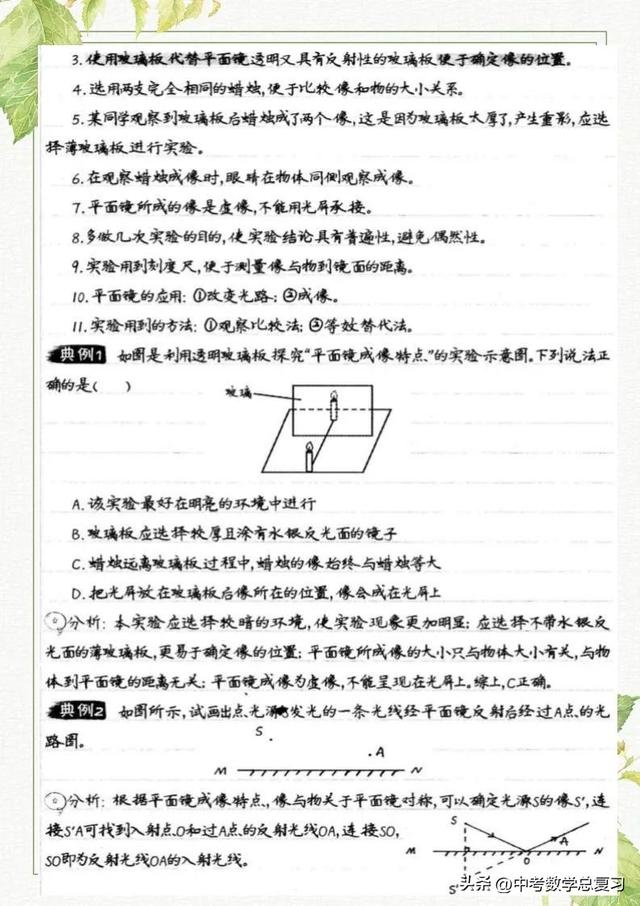 3.使用玻璃板代替平面镜透明又具有反射性的玻璃板便于确定像的位置。
4.选用两支完全相同的蜡烛,便于比较像和物的大小关系。
5.某同学观察到玻璃板后蜡烛成了两个像,这是因为玻璃板太厚了,产生重影,应选
择薄玻璃板进行实验。
6.在观察蜡烛成像时,眼睛在物体同侧观察成像。
7.平面镜所成的像是虚像,不能用光屏承接。
8.多做几次实验的目的,使实验结论具有普遍性,避免偶然性。
9.实验用到刻度尺,便于测量像与物到镜面的距离。
10.平面镜的应用:①改变光路;②成像。
11.实验用到的方法:①观察比较法;②等效替代法。
典例1 如图是利用透明玻璃板探究“平面镜成像特点”的实验示意图。下列说法正
确的是( )
玻璃
A.该实验最好在明亮的环境中进行
B.玻璃板应选择较厚且涂有水银反光面的镜子
C.蜡烛远离玻璃板过程中,蜡烛的像始终与蜡烛等大
D.把光屏放在玻璃板后像所在的位置,像会成在光屏上
分析:本实验应选择较暗的环境,使实验现象更加明显;应选择不带水银反
光面的薄玻璃板,更易于确定像的位置;平面镜所成像的大小只与物体大小有关,与物
体到平面镜的距离无关;平面镜成像为虚像,不能呈现在光屏上。综上,C正确。
典例2 如图所示,试画出点光源发光的一条光线经平面镜反射后经过A点的光
路图。
S
A
M N
分析:根据平面镜成像特点,像与物关于平面镜对称,可以确定光源S的像S′,连
接S′A可找到入射点O和过A点的反射光线OA,连接SO,
SO即为反射光线OA的入射光线。
S
A
M O N
S′
头条 @中考数学总复习